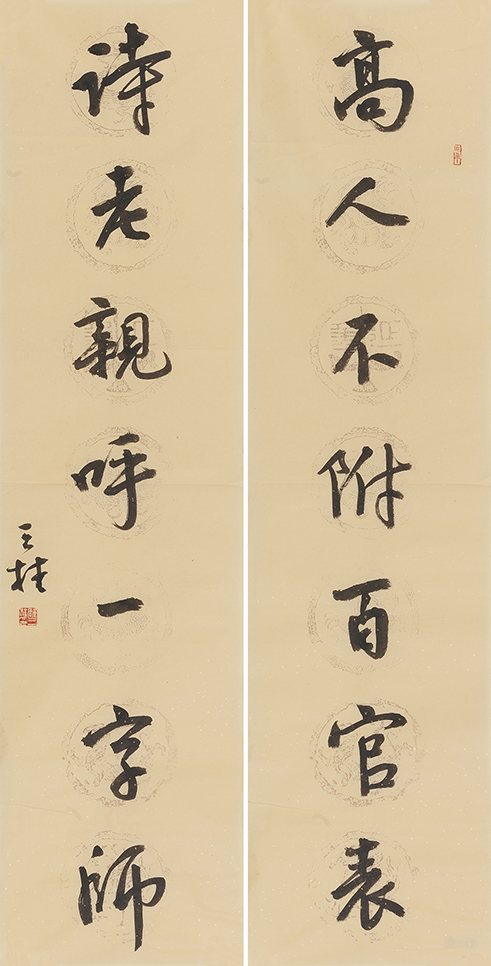 高人不附百官表
詩老親呼一字師